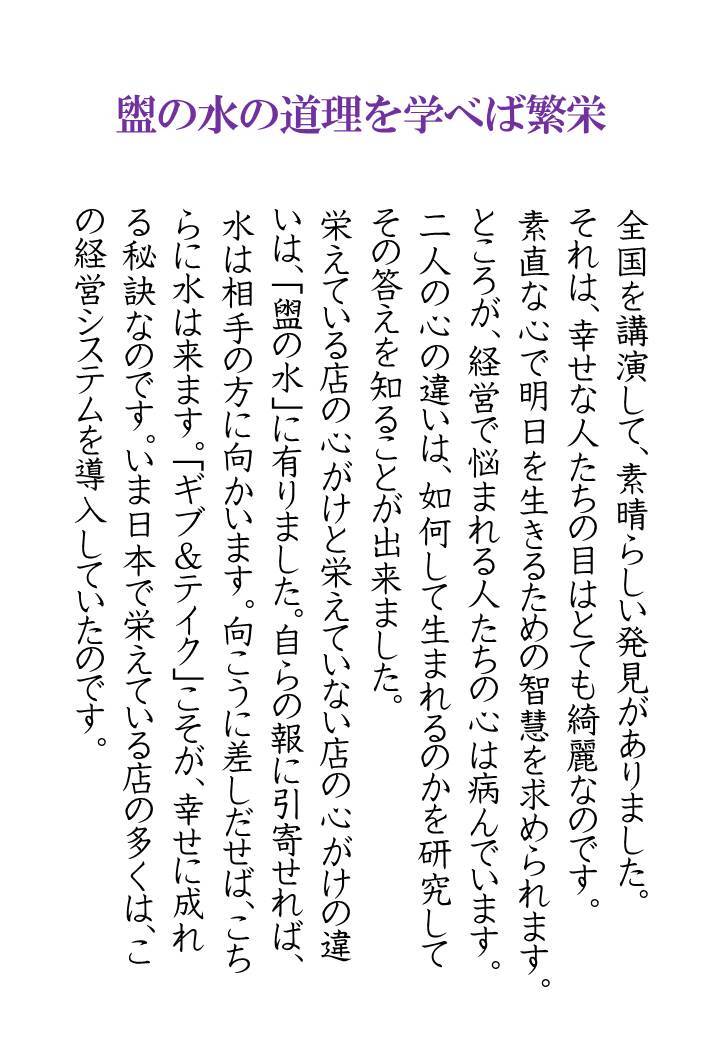 盥の水の道理を学べば繁栄
全国を講演して、素晴らしい発見がありました。
それは、幸せな人たちの目はとても綺麗なのです。
素直な心で明日を生きるための智慧を求められます。
ところが、経営で悩まれる人たちの心は病んでいます。
二人の心の違いは、如何して生まれるのかを研究して
その答えを知ることが出来ました。
栄えている店の心がけと栄えていない店の心がけの違
いは、「盥の水」に有りました。自らの報に引寄せれば、
水は相手の方に向かいます。向こうに差しだせば、こち
らに水は来ます。「ギブ&テイク」こそが、幸せに成れ
る秘訣なのです。いま日本で栄えている店の多くは、こ
の経営システムを導入していたのです。